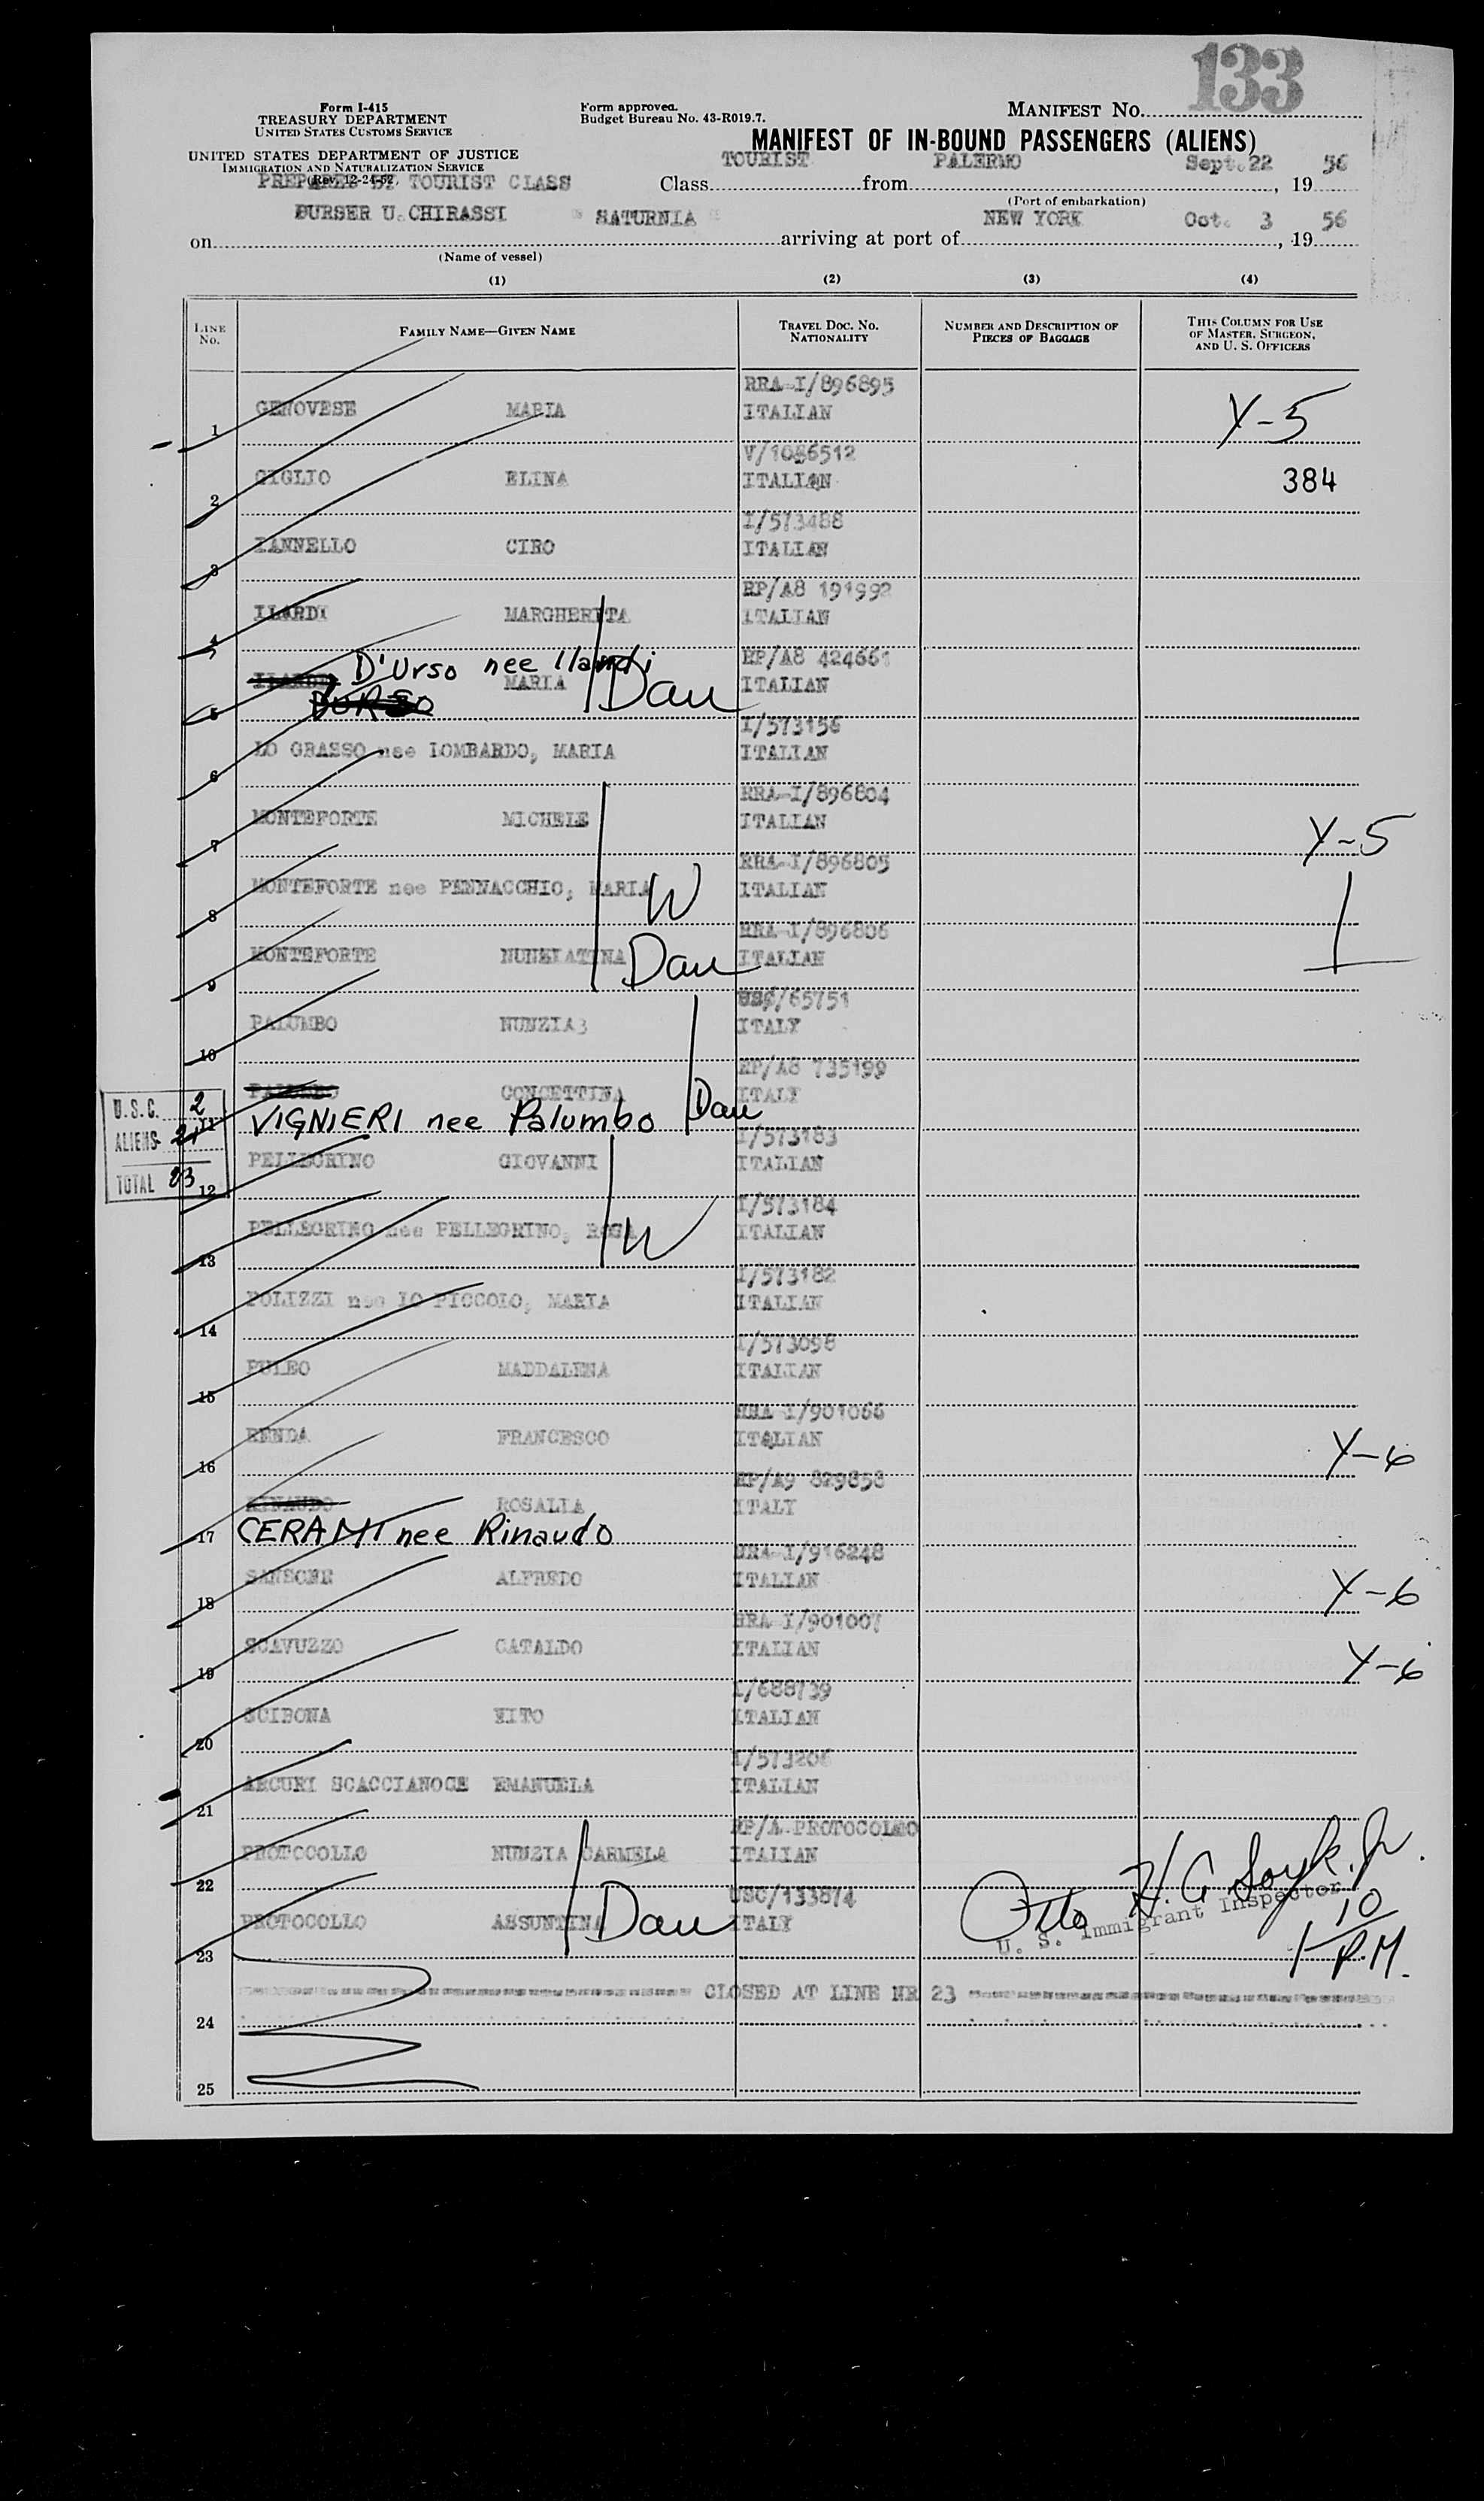 133
Form I-415
TREASURY DEPARTMENT
UNITED STATES CUSTOMS SERVICE
Form approved.
Budget Bureau No. 43-R019.7.
MANIFEST No.
MANIFEST OF IN-BOUND PASSENGERS (ALIENS)
UNITED STATES DEPARTMENT OF JUSTICE
IMMIGRATION AND NATURALIZATION SERVICE
(Rev. 12-24-52)
PREPARED BY TOURIST CLASS
PURSER U. CHIRASSI
Class TOURIST from PALERMO Sept. 22, 1956
(Port of embarkation)
on "SATURNIA" arriving at port of NEW YORK Oct. 3, 1956
(Name of vessel)
(1) (2) (3) (4)
LINE No. FAMILY NAME—GIVEN NAME TRAVEL DOC. NO. NATIONALITY NUMBER AND DESCRIPTION OF PIECES OF BAGGAGE THIS COLUMN FOR USE OF MASTER, SURGEON, AND U. S. OFFICERS
RRA-I/896895
1 GENOVESE MARIA ITALIAN Y-5
V/1086512
2 GIGLIO ELINA ITALIAN 384
I/573488
3 IANNELLO CIRO ITALIAN
RP/A8 191992
4 ILARDI MARGHERITA ITALIAN
RP/A8 424661
D'Urso nee Ilardi
5 ILARDI MARIA Dau ITALIAN
DURSO
I/573156
6 LO GRASSO nee LOMBARDO, MARIA ITALIAN
RRA-I/896804
7 MONTEFORTE MICHELE ITALIAN Y-5
RRA-I/896805
8 MONTEFORTE nee PENNACCHIO, MARIA W ITALIAN
RRA-I/896806
9 MONTEFORTE Dau ITALIAN
USC/65751
10 PALUMBO NUNZIA ITALY
RP/A8 735199
11 PALUMBO CONCETTINA Dau ITALY
VIGNIERI nee Palumbo
U.S.C. 2
ALIENS 21
TOTAL 23
I/573183
12 PELLEGRINO GIOVANNI ITALIAN
I/573184
13 PELLEGRINO nee PELLEGRINO, ROSA W ITALIAN
I/573182
14 POLIZZI nee LO PICCOLO, MARIA ITALIAN
I/573098
15 PULEO MADDALENA ITALIAN
RRA-I/901066
16 RENDA FRANCESCO ITALIAN Y-6
RP/A9 829858
17 RINAUDO ROSALIA ITALY
CERAMI nee Rinaudo
RRA-I/916248
18 SANSONE ALFREDO ITALIAN Y-6
RRA-I/901007
19 SCAVUZZO CATALDO ITALIAN Y-6
I/688739
20 SCIBONA VITO ITALIAN
I/573206
21 ARCURI SCACCIANOCE EMANUELA ITALIAN
RP/A. PROTOCOLLO
22 PROTOCOLLO NUNZIA CARMELA ITALIAN
USC/133874
23 PROTOCOLLO ASSUNTINA Dau ITALY
Otto H. G. Soyk. Jr.
U. S. Immigrant Inspector
1 10 P.M.
24 CLOSED AT LINE NR 23
25